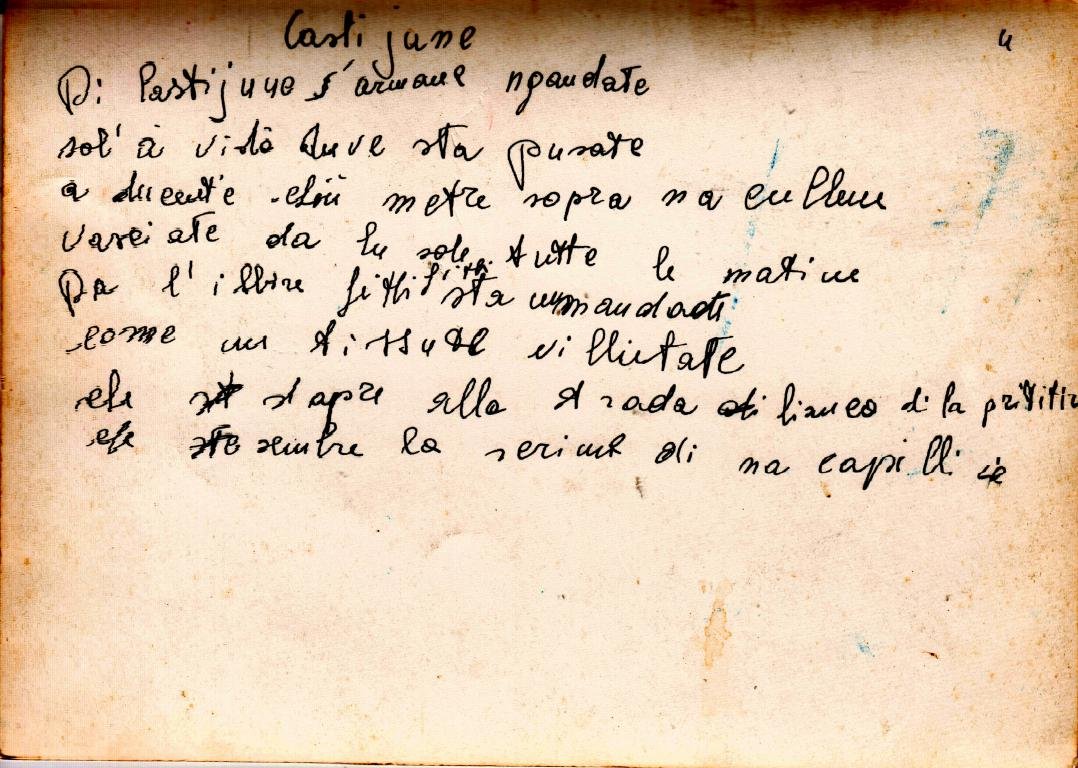 Castijune 4
Di Castijune s'armane ngandate
sol' a vidè duve sta pusate
a ducente chiù metre sopra na cullene
vasciate da lu sole tutte le matine
Da l'ilbire fitti fitti sta ummandate
come un tissute villutate
che s'apre alla strada di bianco di la
che sembre la scrime di na capilli